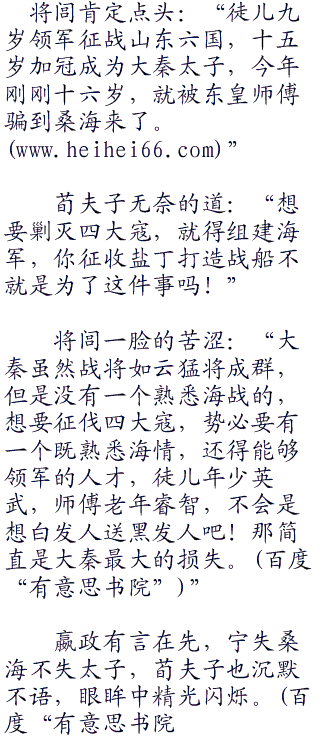 将闾肯定点头：“徒儿九
岁领军征战山东六国，十五
岁加冠成为大秦太子，今年
刚刚十六岁，就被东皇师傅
骗到桑海来了。
(www.heihei66.com)”
荀夫子无奈的道：“想
要剿灭四大寇，就得组建海
军，你征收盐丁打造战船不
就是为了这件事吗！”
将闾一脸的苦涩：“大
秦虽然战将如云猛将成群，
但是没有一个熟悉海战的，
想要征伐四大寇，势必要有
一个既熟悉海情，还得能够
领军的人才，徒儿年少英
武，师傅老年睿智，不会是
想白发人送黑发人吧！那简
直是大秦最大的损失。(百度
“有意思书院”)”
嬴政有言在先，宁失桑
海不失太子，荀夫子也沉默
不语，眼眸中精光闪烁。(百
度“有意思书院